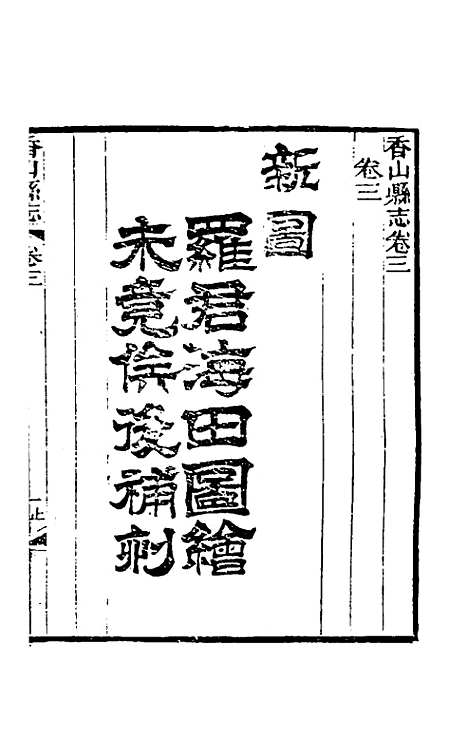 香山縣志卷三
卷三
新圖
羅君海田圖繪
未竟俟後補刺
香山縣志
卷三
一
止